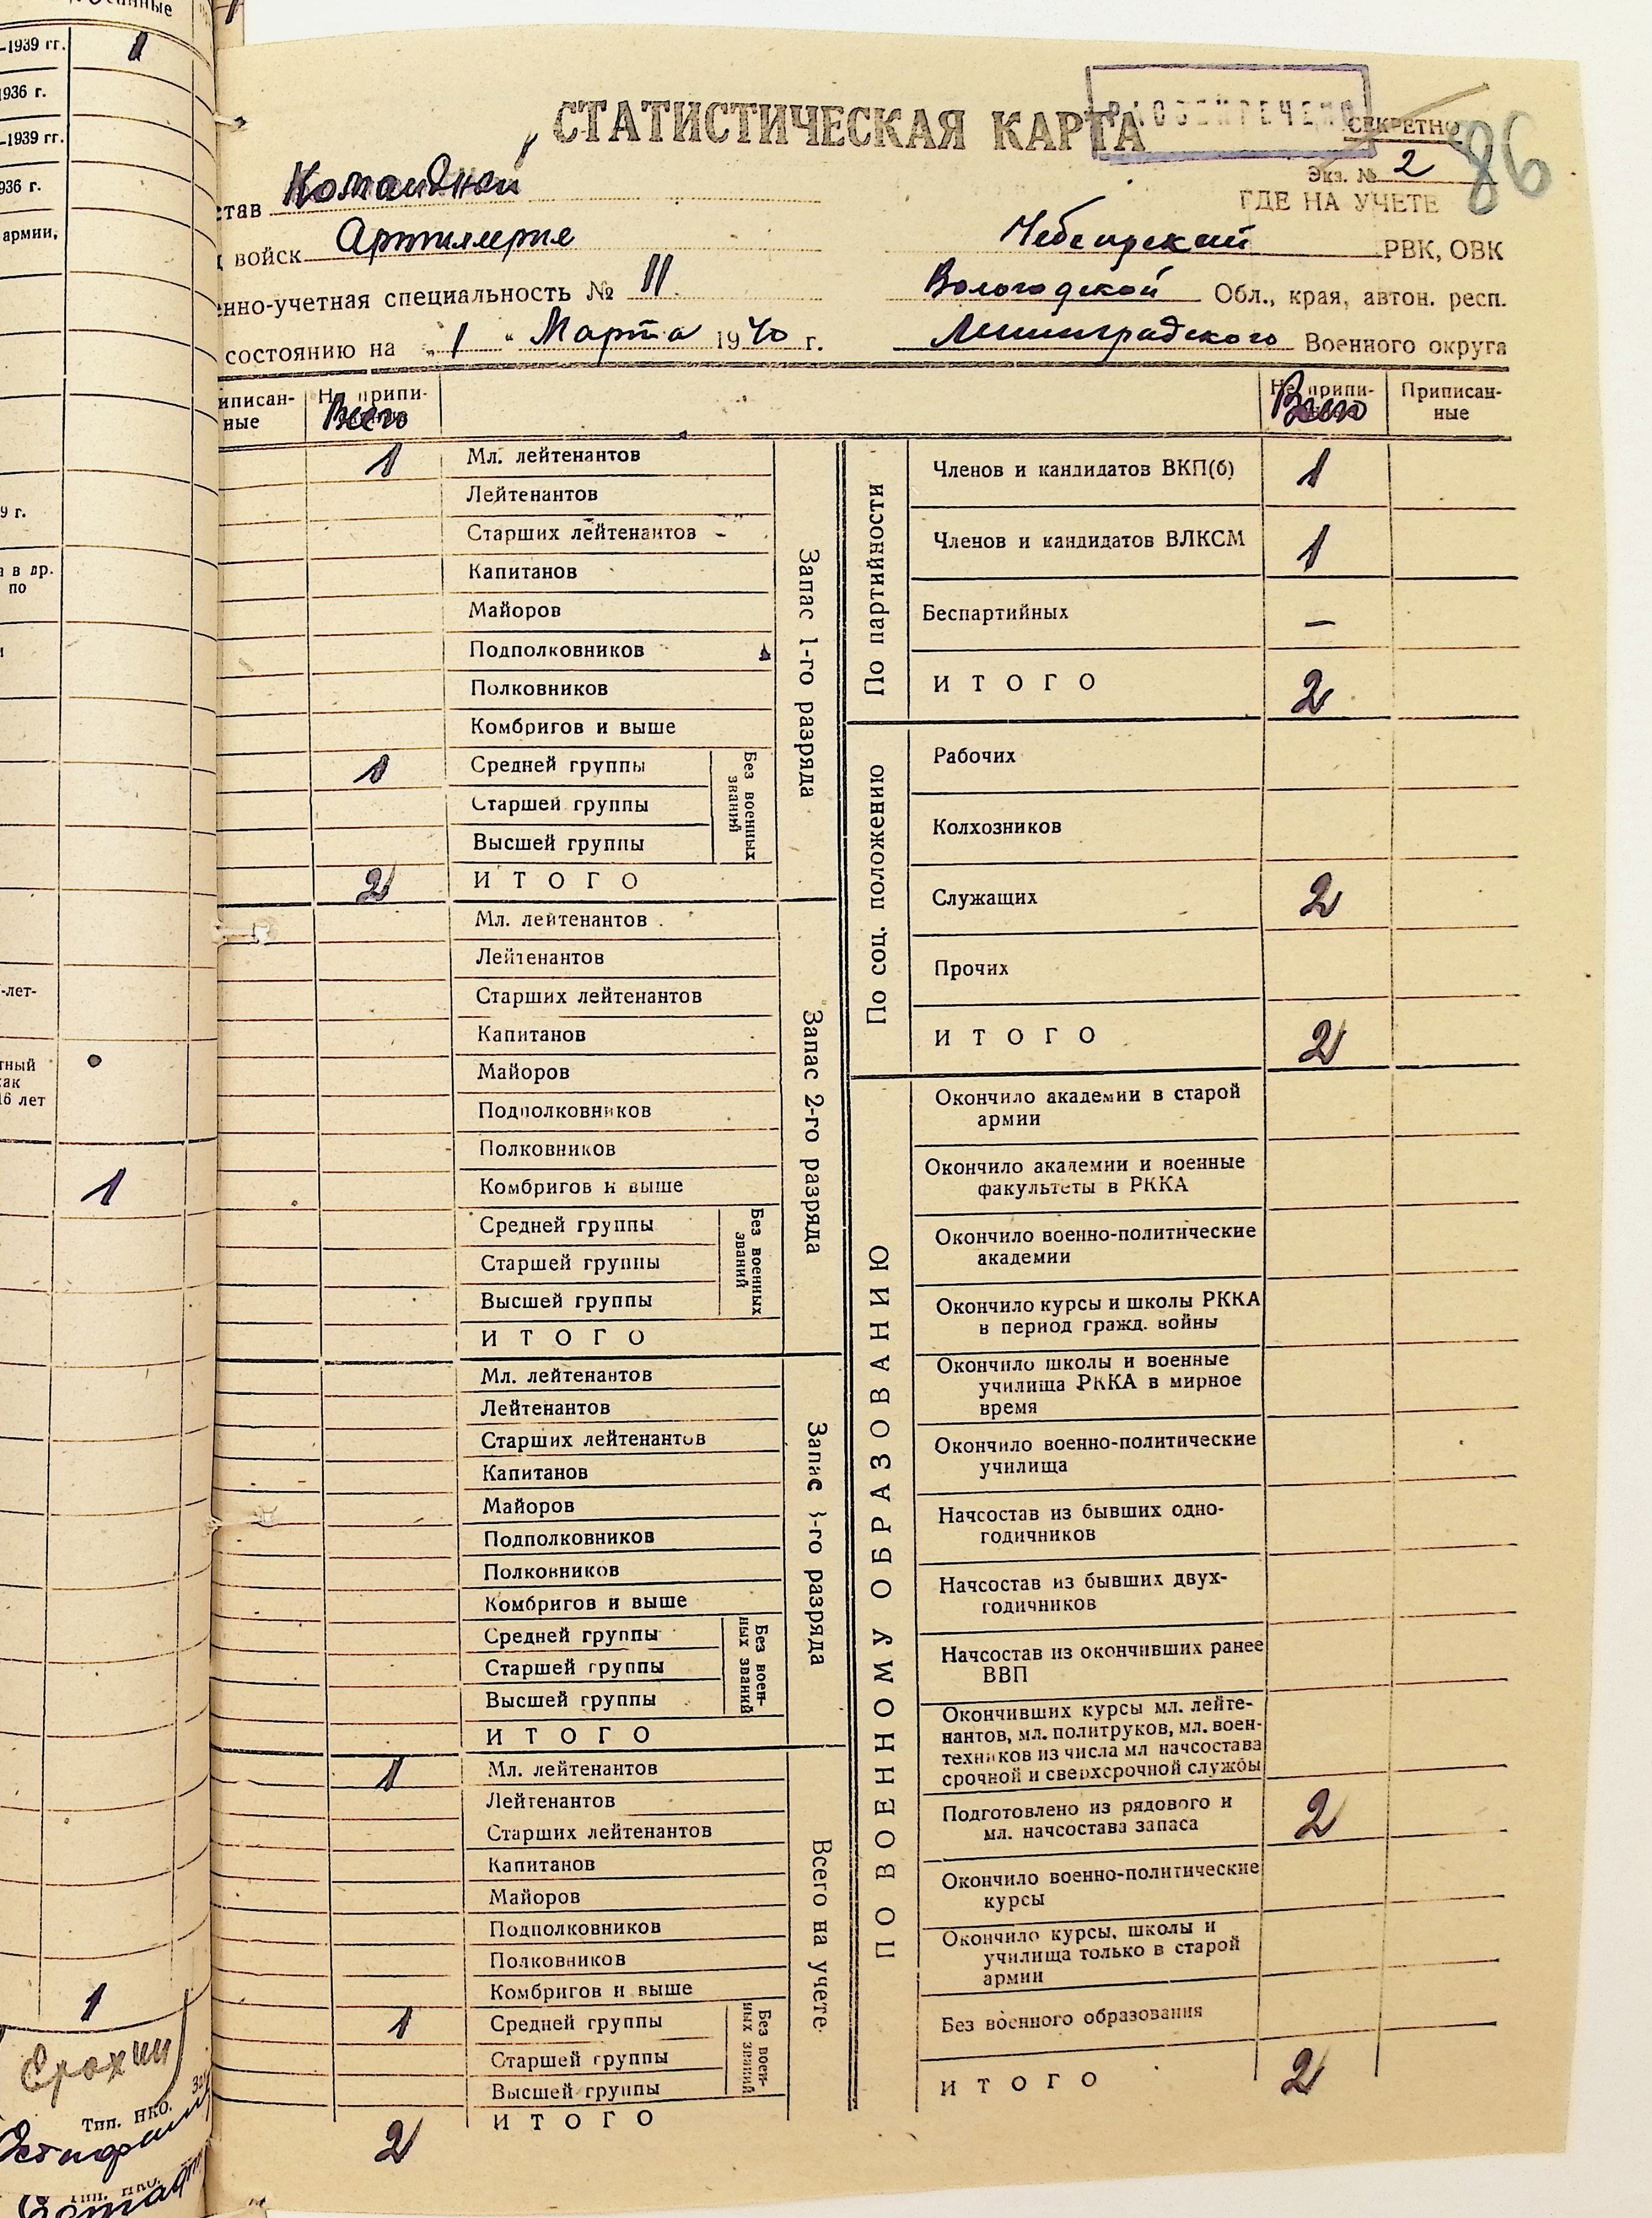 -1939 гг. 1
1936 г.
-1939 гг.
936 г.
армии,
9 г.
в др.
по
-лет-
тный
как
16 лет
1
1
Ерохин
Тип. НКО.
СТАТИСТИЧЕСКАЯ КАРТА
РАССЕКРЕЧЕНО
СЕКРЕТНО
Экз. № 2
86
ГДЕ НА УЧЕТЕ
став Командный
войск Артиллерия
Чебсарский РВК, ОВК
енно-учетная специальность № 11.
Вологодской Обл., края, автон. респ.
состоянию на „1 " Марта 1940 г.
Ленинградского Военного округа
иписан-
ные
Не припи-
Всего
Не припи-
Всего
Приписан-
ные
1 Мл. лейтенантов
Лейтенантов
Старших лейтенантов
Капитанов
Майоров
Подполковников
Полковников
Комбригов и выше
1 Средней группы
Старшей группы
Высшей группы
Без военных
званий
2 ИТОГО
Запас 1-го разряда
Мл. лейтенантов
Лейтенантов
Старших лейтенантов
Капитанов
Майоров
Подполковников
Полковников
Комбригов и выше
Средней группы
Старшей группы
Высшей группы
Без военных
званий
ИТОГО
Запас 2-го разряда
Мл. лейтенантов
Лейтенантов
Старших лейтенантов
Капитанов
Майоров
Подполковников
Полковников
Комбригов и выше
Средней группы
Старшей группы
Высшей группы
Без воен-
ных званий
ИТОГО
Запас 3-го разряда
1 Мл. лейтенантов
Лейтенантов
Старших лейтенантов
Капитанов
Майоров
Подполковников
Полковников
Комбригов и выше
1 Средней группы
Старшей группы
Высшей группы
Без воен-
ных званий
2 ИТОГО
Всего на учете
По партийности
Членов и кандидатов ВКП(б) 1
Членов и кандидатов ВЛКСМ 1
Беспартийных —
ИТОГО 2
По соц. положению
Рабочих
Колхозников
Служащих 2
Прочих
ИТОГО 2
ПО ВОЕННОМУ ОБРАЗОВАНИЮ
Окончило академии в старой
армии
Окончило академии и военные
факультеты в РККА
Окончило военно-политические
академии
Окончило курсы и школы РККА
в период гражд. войны
Окончило школы и военные
училища РККА в мирное
время
Окончило военно-политические
училища
Начсостав из бывших одно-
годичников
Начсостав из бывших двух-
годичников
Начсостав из окончивших ранее
ВВП
Окончивших курсы мл. лейте-
нантов, мл. политруков, мл. воен-
техников из числа мл начсостава
срочной и сверхсрочной службы
Подготовлено из рядового и
мл. начсостава запаса 2
Окончило военно-политические
курсы
Окончило курсы, школы и
училища только в старой
армии
Без военного образования
ИТОГО 2